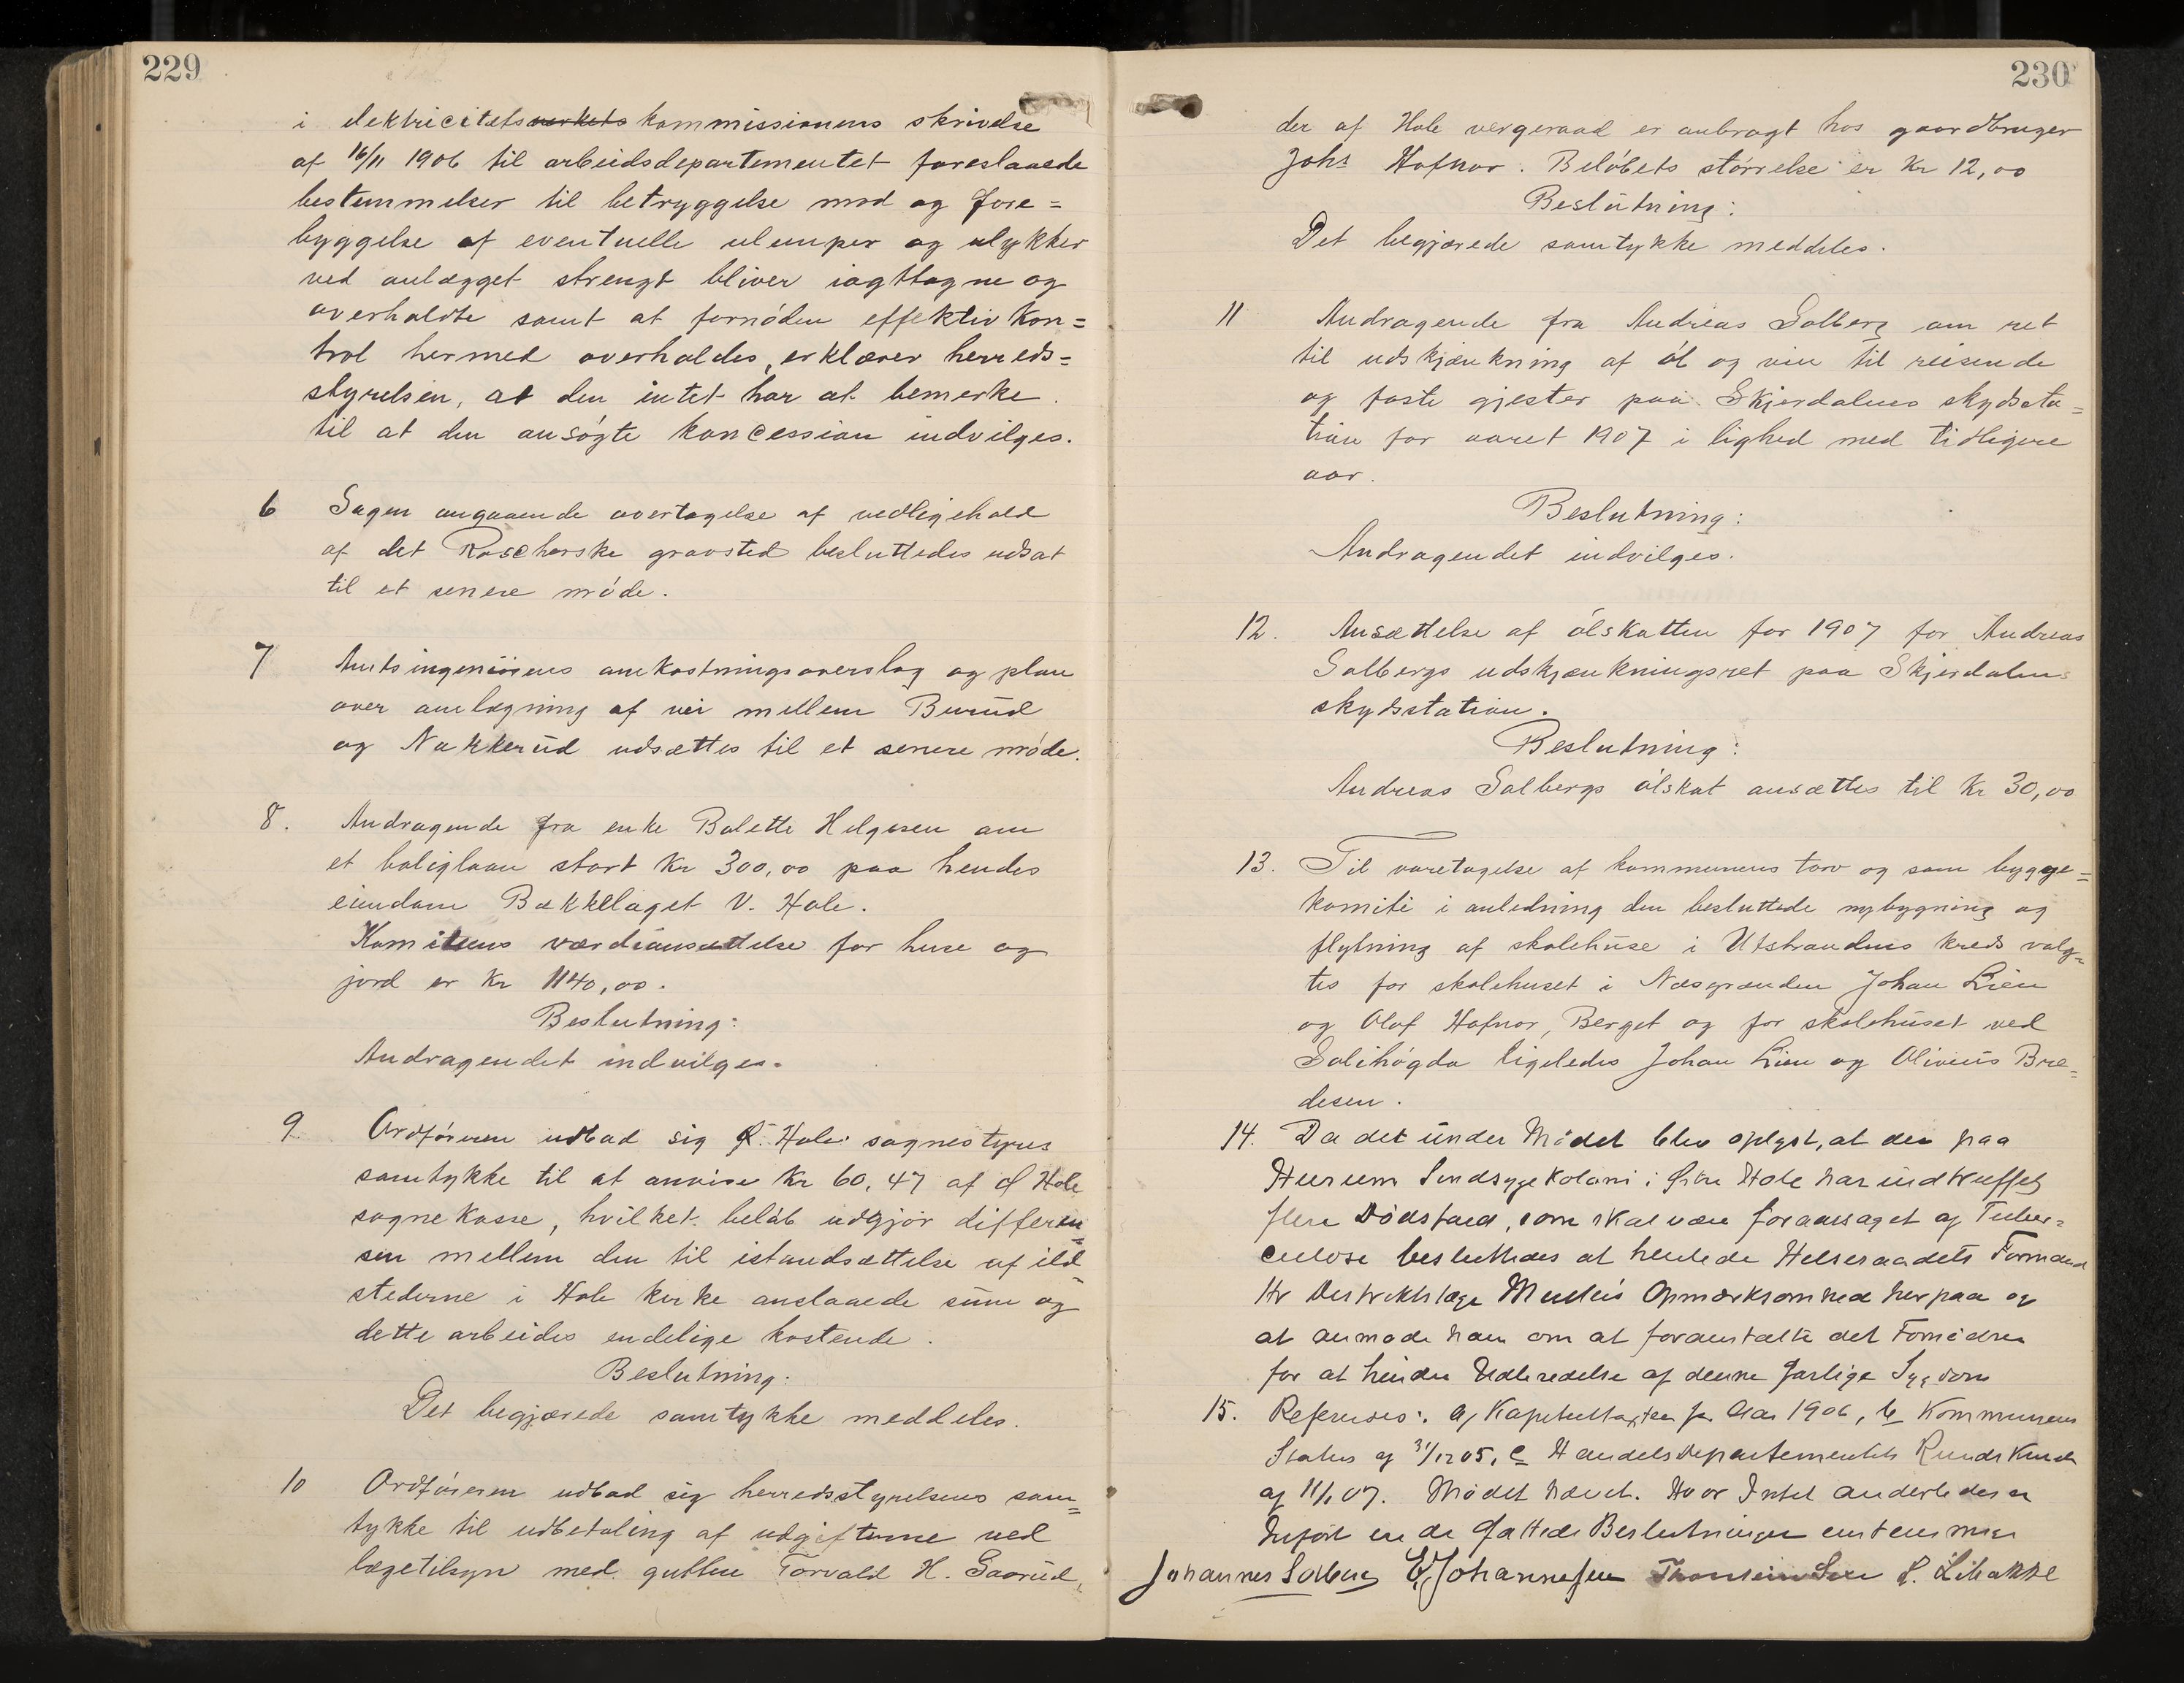 229
i elektricitetsverkets kommissionens skrivelse
af 16/11 1906 til arbeidsdepartementet foreslaaede
bestemmelser til betryggelse mod og fore=
byggelse af eventuelle ulemper og ulykker
ved anlægget strengt bliver iagttagne og
overholdte samt at fornøden effektiv kon=
trol hermed overholdes, erklærer herreds=
styrelsen, at den intet har at bemerke
til at den ansøgte koncession indvilges.
6 Sagen angaaende overtagelse af vedligehold
af det Roscherske gravsted besluttedes udsat
til et senere møde.
7 Amtsingeniørens omkostningsoverslag og plan
over omlægning af vei mellem Burud
og Nakkerud udsættes til et senere møde.
8. Andragende fra enke Bolette Helgesen om
et boliglaan stort kr 300,00 paa hendes
eiendom Bækkelaget V. Hole.
Komiteens værdiansættelse for huse og
jord er kr 1140,00.
Beslutning:
Andragendet indvilges.
9 Ordføreren udbad sig Hole sognestyres
samtykke til at anvise kr 60,47 af Hole
sognekasse, hvilket beløb udgjør differen=
sen mellem den til istandsættelse af ild=
stederne i Hole kirke anslaaede sum og
dette arbeides endelige kostende.
Beslutning:
Det begjærede samtykke meddeles.
10 Ordføreren udbad sig herredsstyrelsens sam=
tykke til udbetaling af udgifterne ved
lægetilsyn med gutten Torvald H. Gaarud,
230
der af Hole vergeraad er anbragt hos gaardbruger
Johs Hafnor. Beløbets størrelse er kr 12,00
Beslutning:
Det begjærede samtykke meddeles.
11 Andragende fra Andreas Solberg om ret
til udskjænkning af øl og vin til reisende
og faste gjester paa Skjerdalens skydssta=
tion for aaret 1907 i lighed med tidligere
aar.
Beslutning:
Andragendet indvilges.
12. Ansættelse af ølskatten for 1907 for Andreas
Solbergs udskjænkningsret paa Skjerdalens
skydsstation.
Beslutning:
Andreas Solbergs ølskat ansættes til kr 30,00
13. Til varetagelse af kommunens tarv og som bygge=
komite i anledning den besluttede nybygning og
flytning af skolehuse i Utstrandens kreds valg=
tes for skolehuset i Næsgrænden Johan Lien
og Olaf Hafnor, Berget og for skolehuset ved
Solihøgda ligeledes Johan Lien og Olivius Bre=
desen.
14. Da det under Mødet blev oplyst, at der paa
Sindsygekoloni i Hole har indtruffet
flere Dødsfald, som skal være foraarsaget af Tuber=
culose besluttedes at henlede Helseraadets Formand
Hr Distriktslæge Opmærksomhed herpaa og
at anmode ham om at foranstalte det Fornødne
for at hindre Udbredelse af denne farlige Sygdom
15. Refereres: a, for Aar 1906, b Kommunens
Status af 31/12 05, c Handelsdepartementets Rundskrivelse
af 11/1 07. Mødet hævet. Hvor Intet anderledes er
Anført er de fattede Beslutninger enstemmige
Johannes Solberg Johannesen S. Libakke